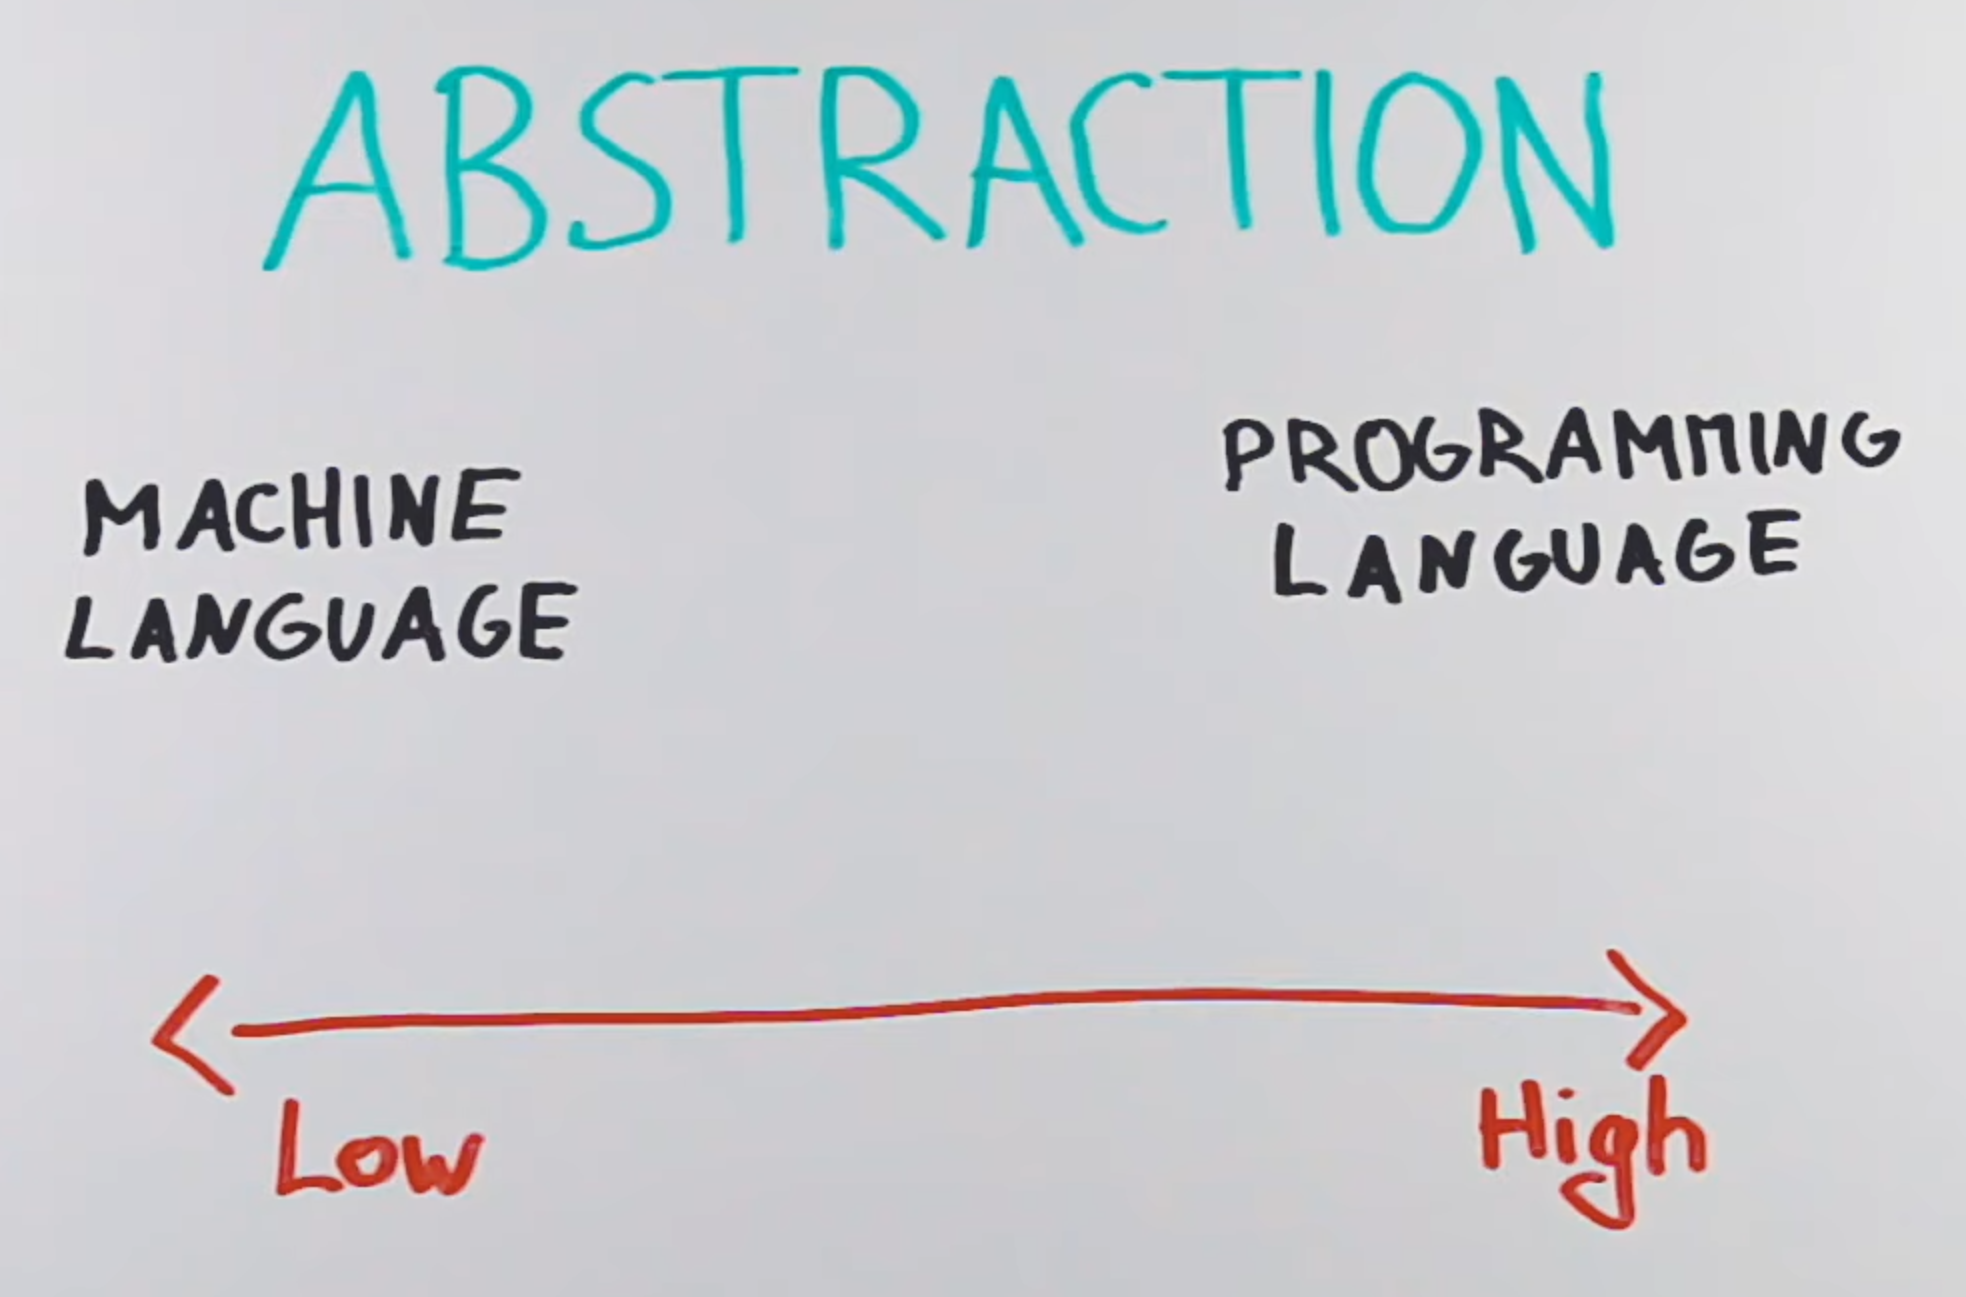 ABSTRACTION
MACHINE
LANGUAGE
PROGRAMMING
LANGUAGE
Low
High